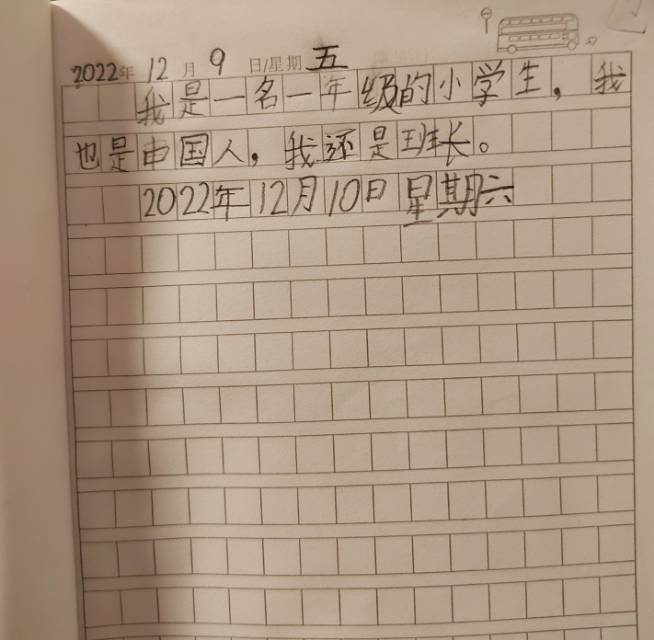 2022年 12 月 9 日/星期 五
我是一名一年级的小学生，我
也是中国人，我还是班长。
2022年12月10日星期六